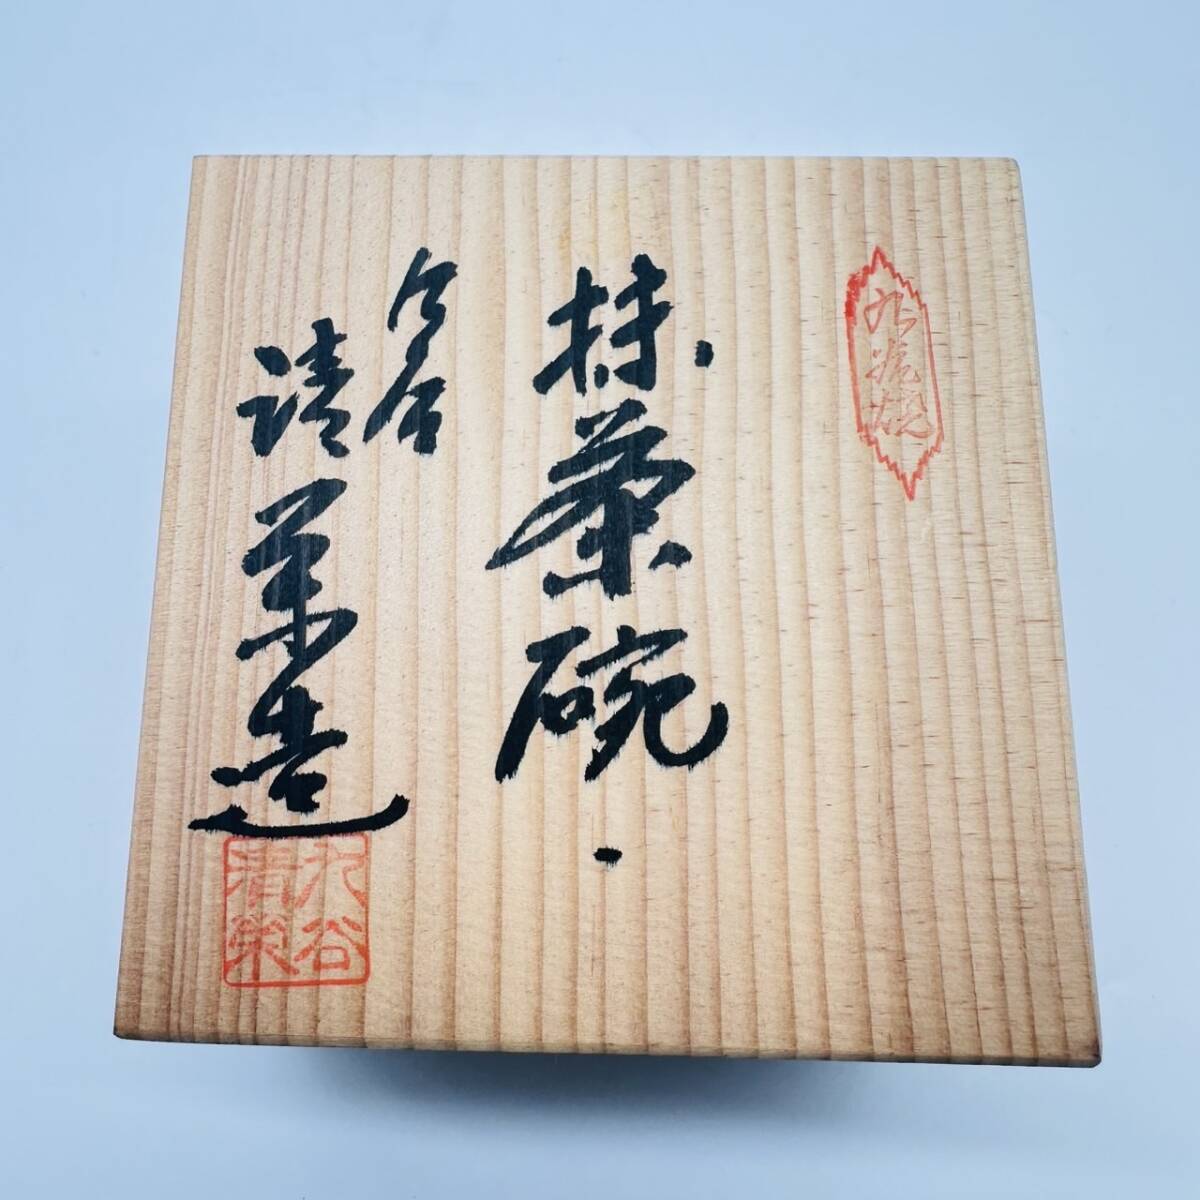 九谷焼
抹茶碗
九谷
清栄造
九谷
清栄